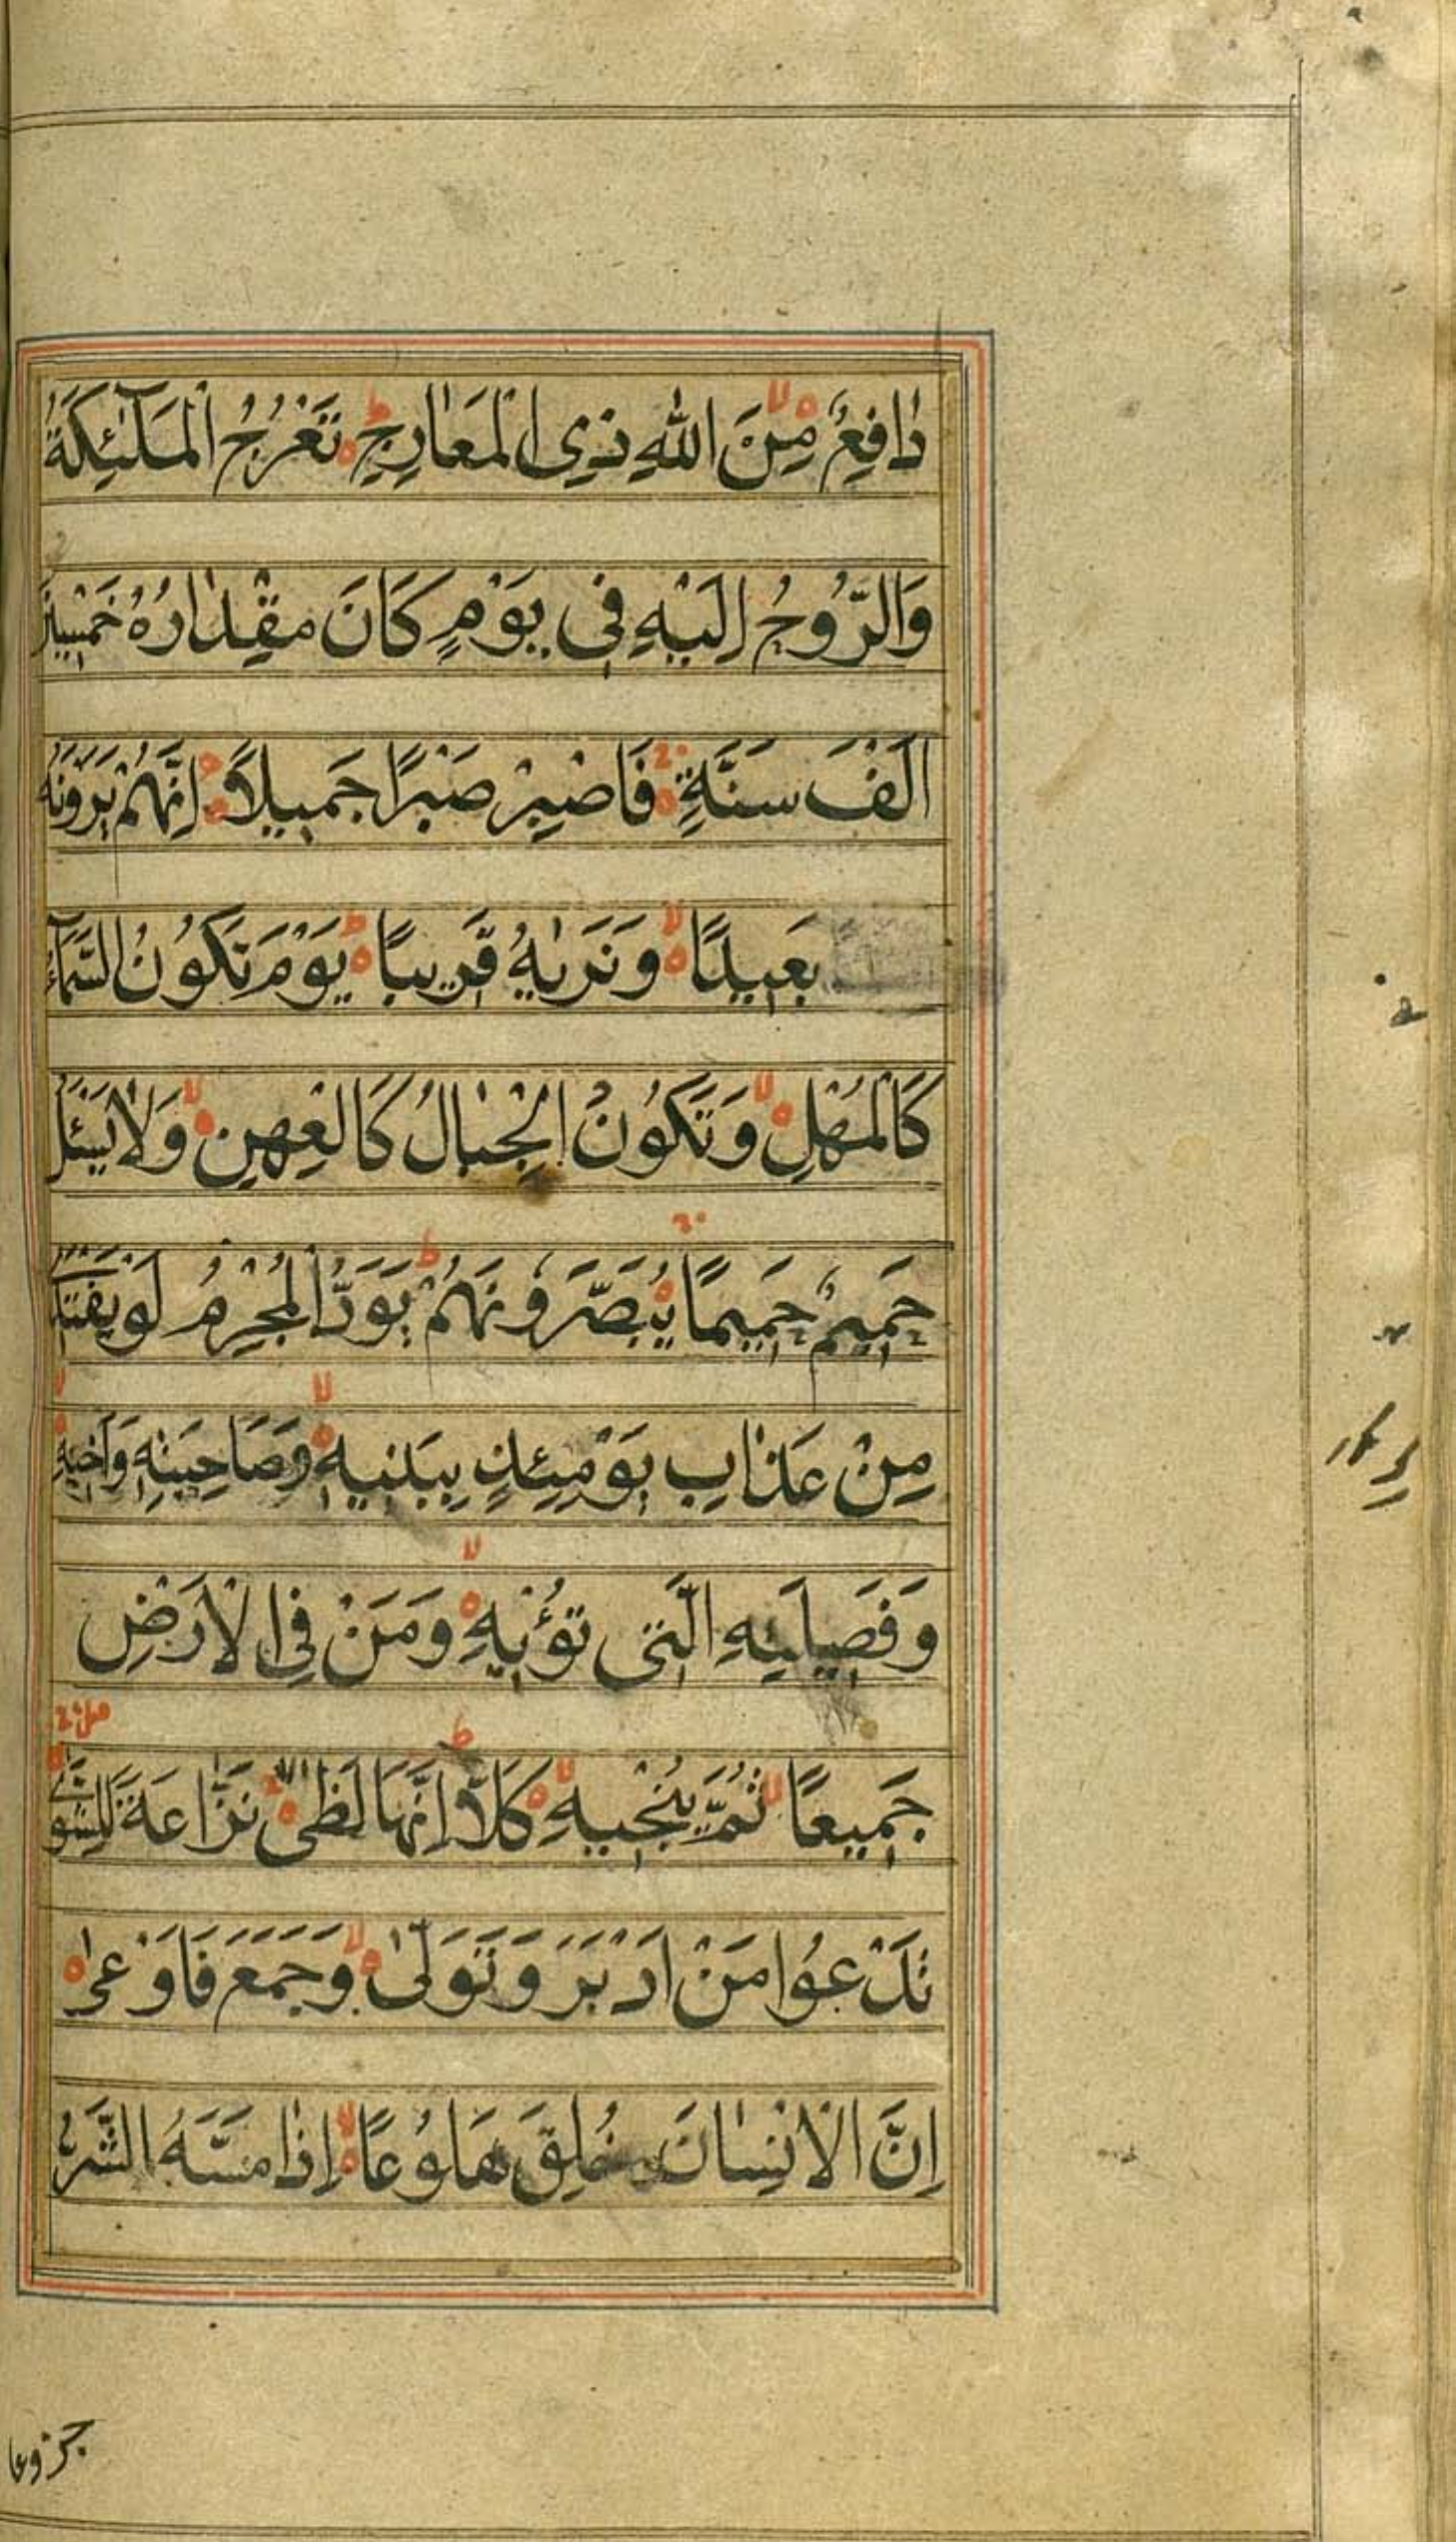 دَافِعٌ مِّنَ اللّٰهِ ذِى الْمَعَارِجِ تَعْرُجُ الْمَلٰٓئِكَةُ
وَالرُّوحُ اِلَيْهِ فِى يَوْمٍ كَانَ مِقْدَارُهُ خَمْسِيْنَ
اَلْفَ سَنَةٍ فَاصْبِرْ صَبْرًا جَمِيلًا اِنَّهُمْ يَرَوْنَهُ
بَعِيدًا وَنَرٰيهُ قَرِيبًا يَوْمَ تَكُونُ السَّمَآءُ
كَالْمُهْلِ وَتَكُونُ الْجِبَالُ كَالْعِهْنِ وَلَا يَسْئَلُ
حَمِيمٌ حَمِيمًا يُبَصَّرُونَهُمْ يَوَدُّ الْمُجْرِمُ لَوْ يَفْتَدِى
مِنْ عَذَابِ يَوْمَئِذٍ بِبَنِيهِ وَصَاحِبَتِهِ وَاَخِيهِ
وَفَصِيلَتِهِ الَّتِى تُؤْيهِ وَمَنْ فِى الْاَرْضِ
جَمِيعًا ثُمَّ يُنْجِيهِ كَلَّا اِنَّهَا لَظٰى نَزَّاعَةً لِلشَّوٰى
تَدْعُوا مَنْ اَدْبَرَ وَتَوَلّٰى وَجَمَعَ فَاَوْعٰى
اِنَّ الْاِنْسَانَ خُلِقَ هَلُوعًا اِذَا مَسَّهُ الشَّرُّ
جزوعا